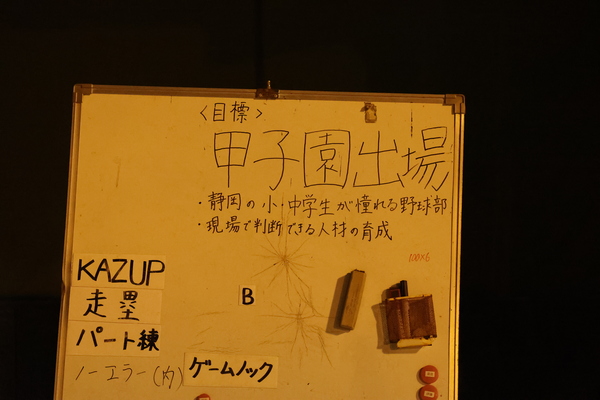 〈目標〉
甲子園出場
・静岡の小・中学生が憧れる野球部
・現場で判断できる人材の育成
100×6
KAZUP
B
走塁
パート練
ノーエラー(内)
ゲームノック